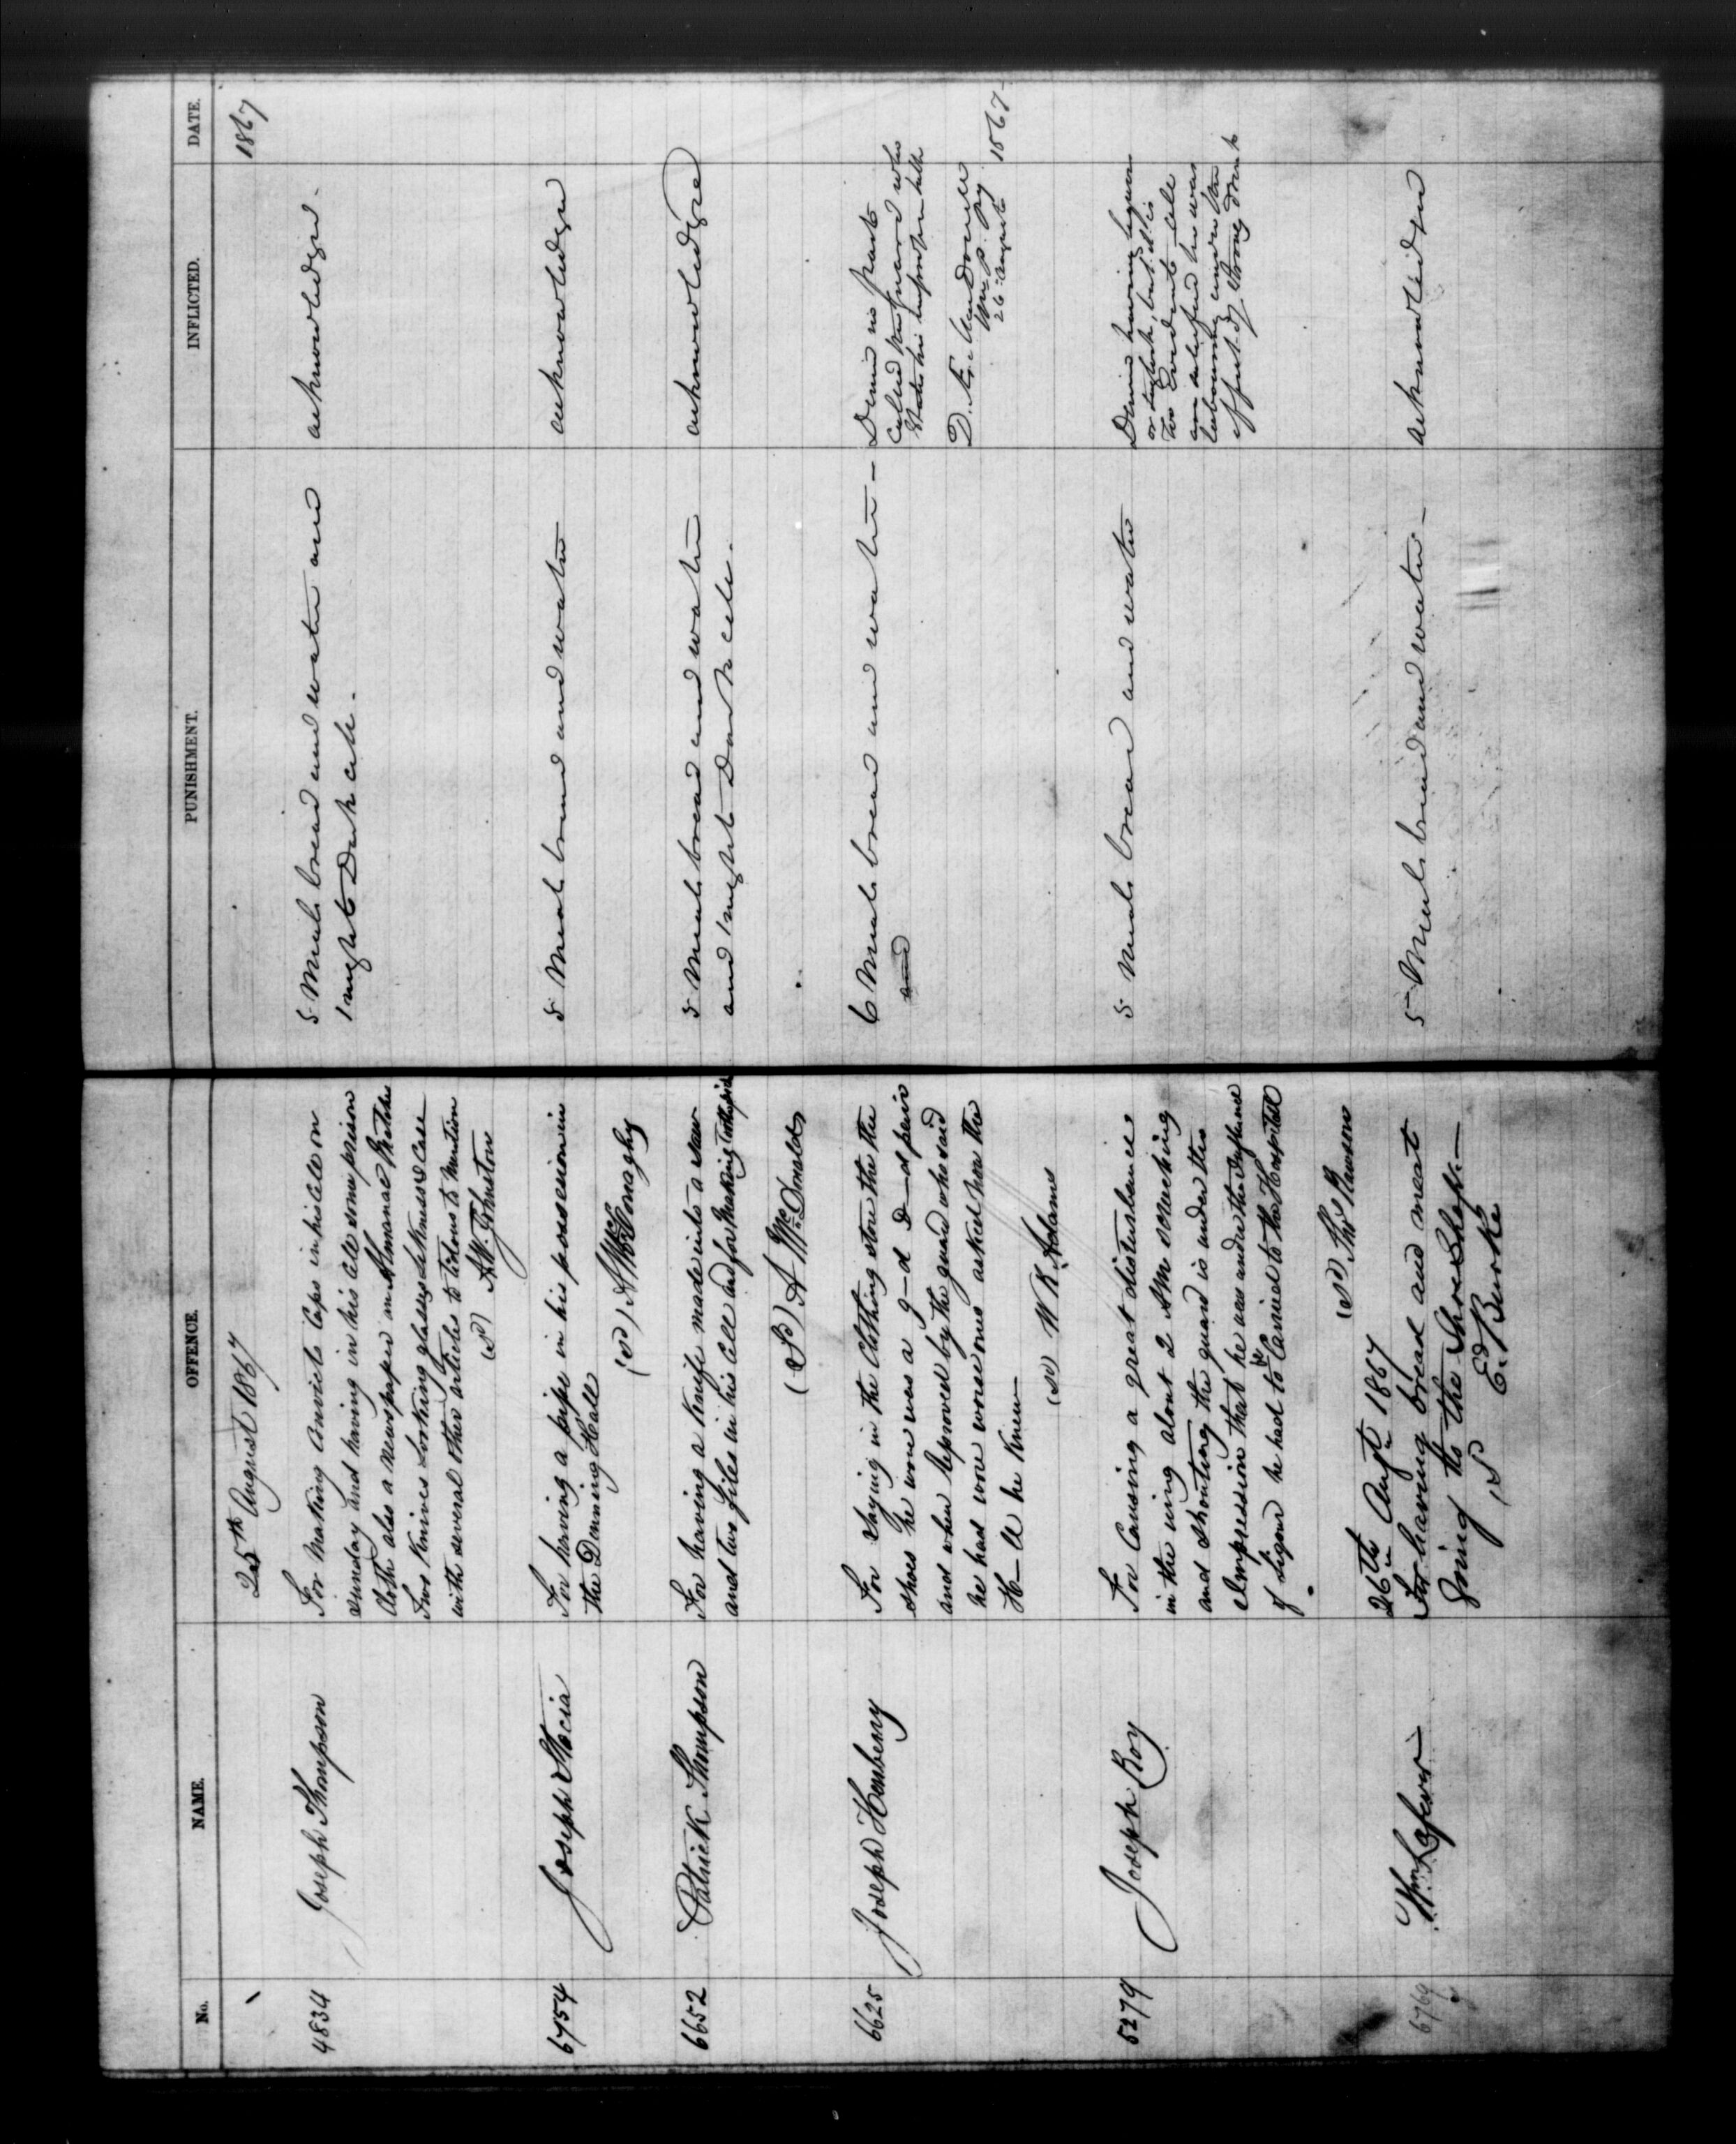 No. NAME. OFFENCE. PUNISHMENT. INFLICTED. DATE.
25th August 1867
1867
4834 Joseph Thompson
For making Convicts Caps in his Cell on
Sunday and having in his Cell some prison
Cloth also a newspaper an Almanac Matches
Two Knives Looking glasses & Knives & Case
with several other articles to tedious to Mention
(Sd) A. W. Johnston
5 Meals bread and water and
1 night Dark cell.
acknowledged.
6754 Joseph Stocia
For having a pipe in his possession in
the Dinning Hall
(Sd) A McDonaghy
5 Meals bread and water
acknowledged
6652 Patrick Thompson
For having a Knife made into a saw
and two files in his Cell and for Making
(Sd) A McDonald
5 Meals bread and water
and 1 night Dark cell.
acknowledged
6625 Joseph Henberry
For Saying in the Clothing store the the
shoes he wore was a g—d D—d pair
and when Reproved by the guard who said
he had wore worse ones asked how the
H—ll he Knew
(Sd) W R Adams
6 Meals bread and water —
and
Denies in part
Called the guard who
States his
D. Æ. Macdonell
W. P. Py
26 August 1867
5279 Joseph Roy
For Causing a great disturbance
in the wing about 2 AM screeching
and shouting the guard is under the
Impression that he was under the Influence
of Liquor he had to be Carried to the Hospital
(Sd) Thos Clawson
5 Meals bread and water
Denies having liquor
but it is
too Evident all
am satisfied he was
labouring under the
effect of Strong Drink
26th Augt 1867
6769 Wm Lafever
For having bread and meat
going to the Shoe Shop —
(Sd) Ed Burke
5 Meals bread and water —
acknowledged